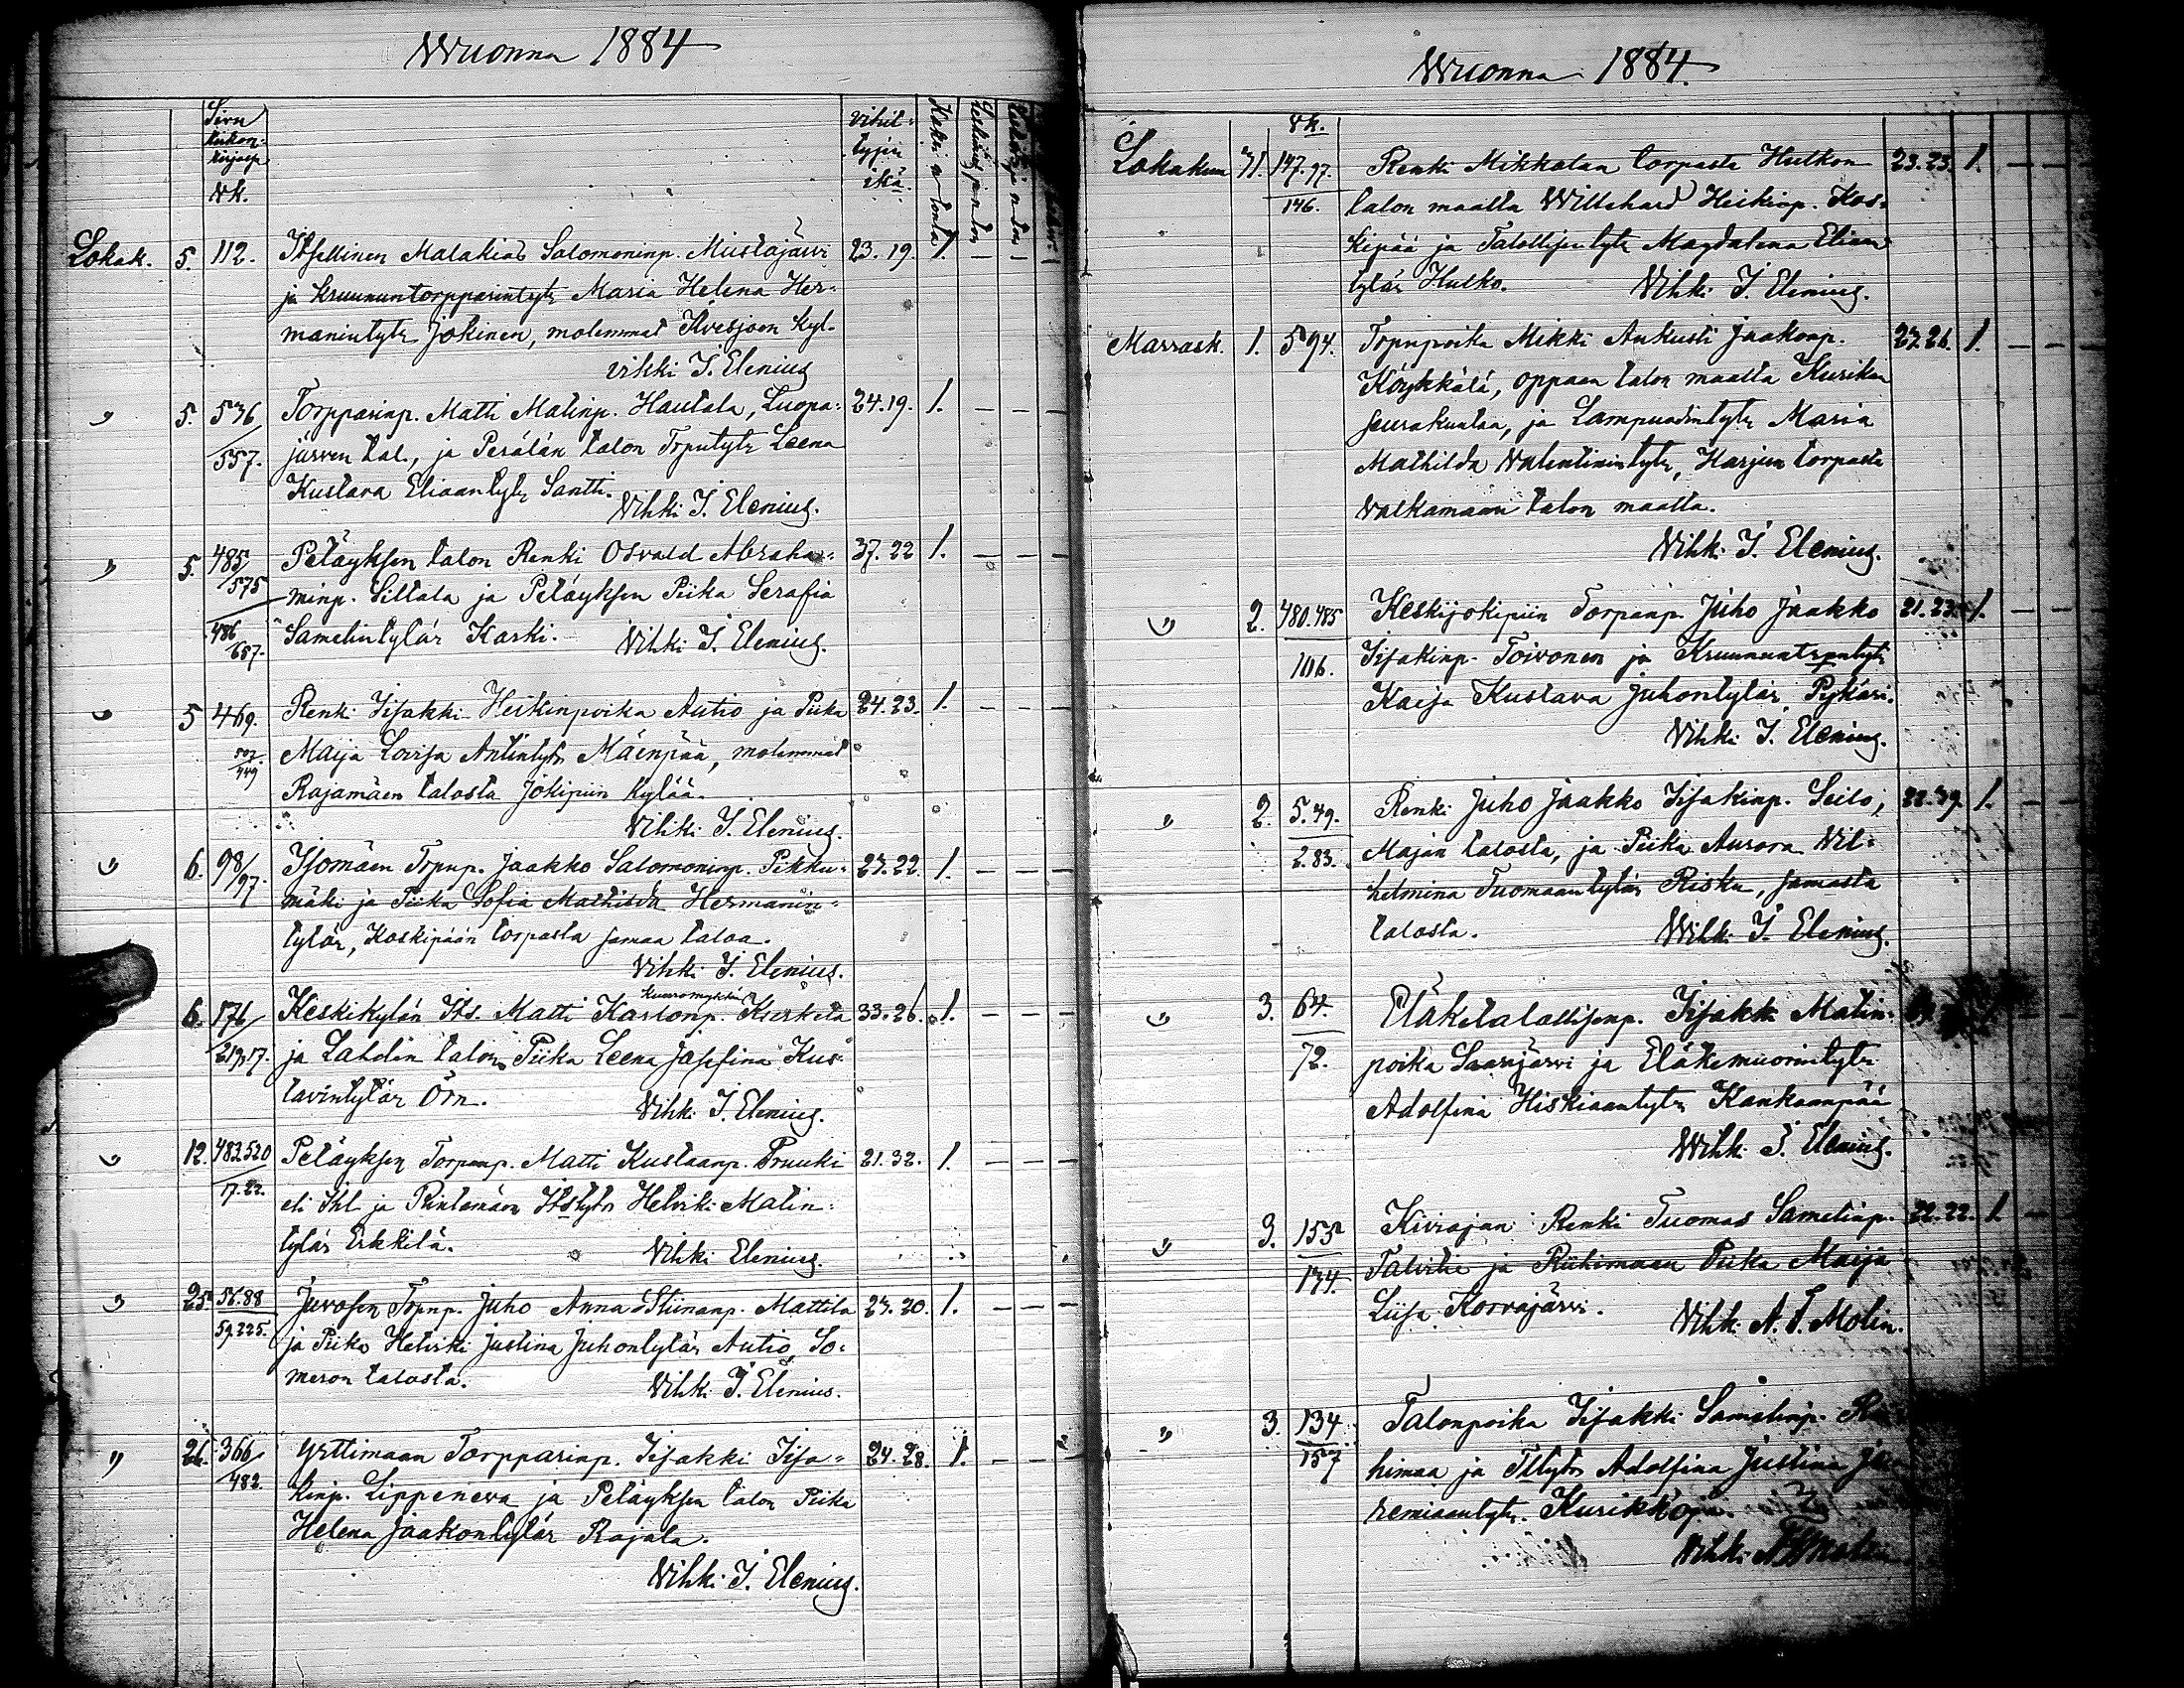 Wuonna 1884
Sivu
kirkon-
kirjasp
Vk.
vihit-
tyjen
ikä.
Lokak. 5. 112. Itsellinen Malakias Salomoninp. Mustajärvi 23. 19. 1. — —
ja kruununtorpparintytr Maria Helena Her-
manintytr Jokinen, molemmat Ilvesjoen kyl.
vihki I. Elenius
" 5. 536 Torpparinp. Matti Matinp. Hautala, Luopa- 24. 19. 1. — — —
557. järven tal., ja Perälän talon Trpntytr Leena
Kustava Eliaantytr Santti.
Vihki I. Elenius.
" 5. 485/575 Peläyksen talon Renki Osvald Abraha- 37. 22 1. — — —
minp. Sillala ja Peläyksen Piika Serafia
486/657. Samelintytär Karki. Vihki I. Elenius.
" 5 469. Renki Iisakki Heikinpoika Autio ja Piika 24. 23. 1. — — —
449 Maija Lovisa Antintytr Mäenpää, molemmat
Rajamäen talosta Jokipiin kylää.
Vihki I. Elenius.
" 6. 98/97. Isomäen Trpnp. Jaakko Salomoninp. Pikku- 23. 22. 1. — — —
mäki ja Piika Sofia Mathilda Hermanin-
tytär, Koskipään torpasta samaa taloa.
Vihki I. Elenius.
kuuromykkä
6. 176/ Keskikylän Its. Matti Karlonp. Kurkela 33. 26. 1. — — —
219,17. ja Lahdin talon Piika Leena Josefina Kus-
tavintytär Örn. Vihki I. Elenius.
" 12. 483.520 Peläyksen Torpanp. Matti Kustaanp. Pruuki 21. 32. 1. — — —
17. 22. eli Ihl ja Rintamäen Itstytr Helviki Matin-
tytär Erkkilä. Vihki Elenius.
" 25. 56.88 Juvosen Trpnp. Juho Anna Stiinanp. Mattila 23. 20. 1. — — —
59.225. ja Piika Helviki Justina Juhontytär Autio, So-
meron talosta. Vihki I. Elenius.
" 26. 366/ Yrttimaan Torpparinp. Iisakki Iisa- 24. 28. 1. — — —
482. kinp. Lippeneva ja Peläyksen talon Piika
Helena Jaakontytär Rajala.
Vihki I. Elenius.
Wuonna 1884.
Vk.
Lokakuu 31. 147. 97. Renki Mikkolan torpasta Hutkon 23. 23. 1. — —
146. talon maalta Willehard Heikinp. Kos-
kipää ja Talollisentytr Magdalena Elian
tytär Hutko. Vihki I. Elenius.
Marrask. 1. 594. Trpnpoika Mikki Aukusti Jaakonp. 23. 26. 1. — —
Köykkälä, oppaan talon maalta Kurikan
seurakuntaa, ja Lampuodintytr Maria
Mathilda Valentinintytr, Harjun torpasta
Valkamaan talon maalta.
Vihki I. Elenius.
" 2. 480.485 Keskijokipiin Torpanp. Juho Jaakko 21. 23. 1. — —
106. Iisakinp. Toivonen ja Kruununtrpntytr
Kaisa Kustava Juhontytär Pykäri.
Vihki I. Elenius.
" 2. 5.49. Renki Juho Jaakko Iisakinp. Seilo, 22. 39. 1. — —
2.83. Majan talosta, ja Piika Aurora Wil-
helmina Tuomaantytär Risku, samasta
talosta. Wihki I. Elenius.
" 3. 64. Eläketalollisenp. Iisakki Matin-
72. poika Saarijärvi ja Eläkemuorintytr
Adolfina Hiskiaantytr Kankaanpää
Wihki I. Elenius.
" 3. 155 Kivirajan Renki Tuomas Samelinp. 22. 22. 1. —
134. Talvitie ja Riihimaan Piika Maija
Liisa Korvajärvi. Vihki A. F. Molin.
" 3. 134 Talonpoika Iisakki Samelinp.
157 himaa ja Tltytr Adolfina Justina Je-
remiaantytr. Kurikkopi.
Vihki